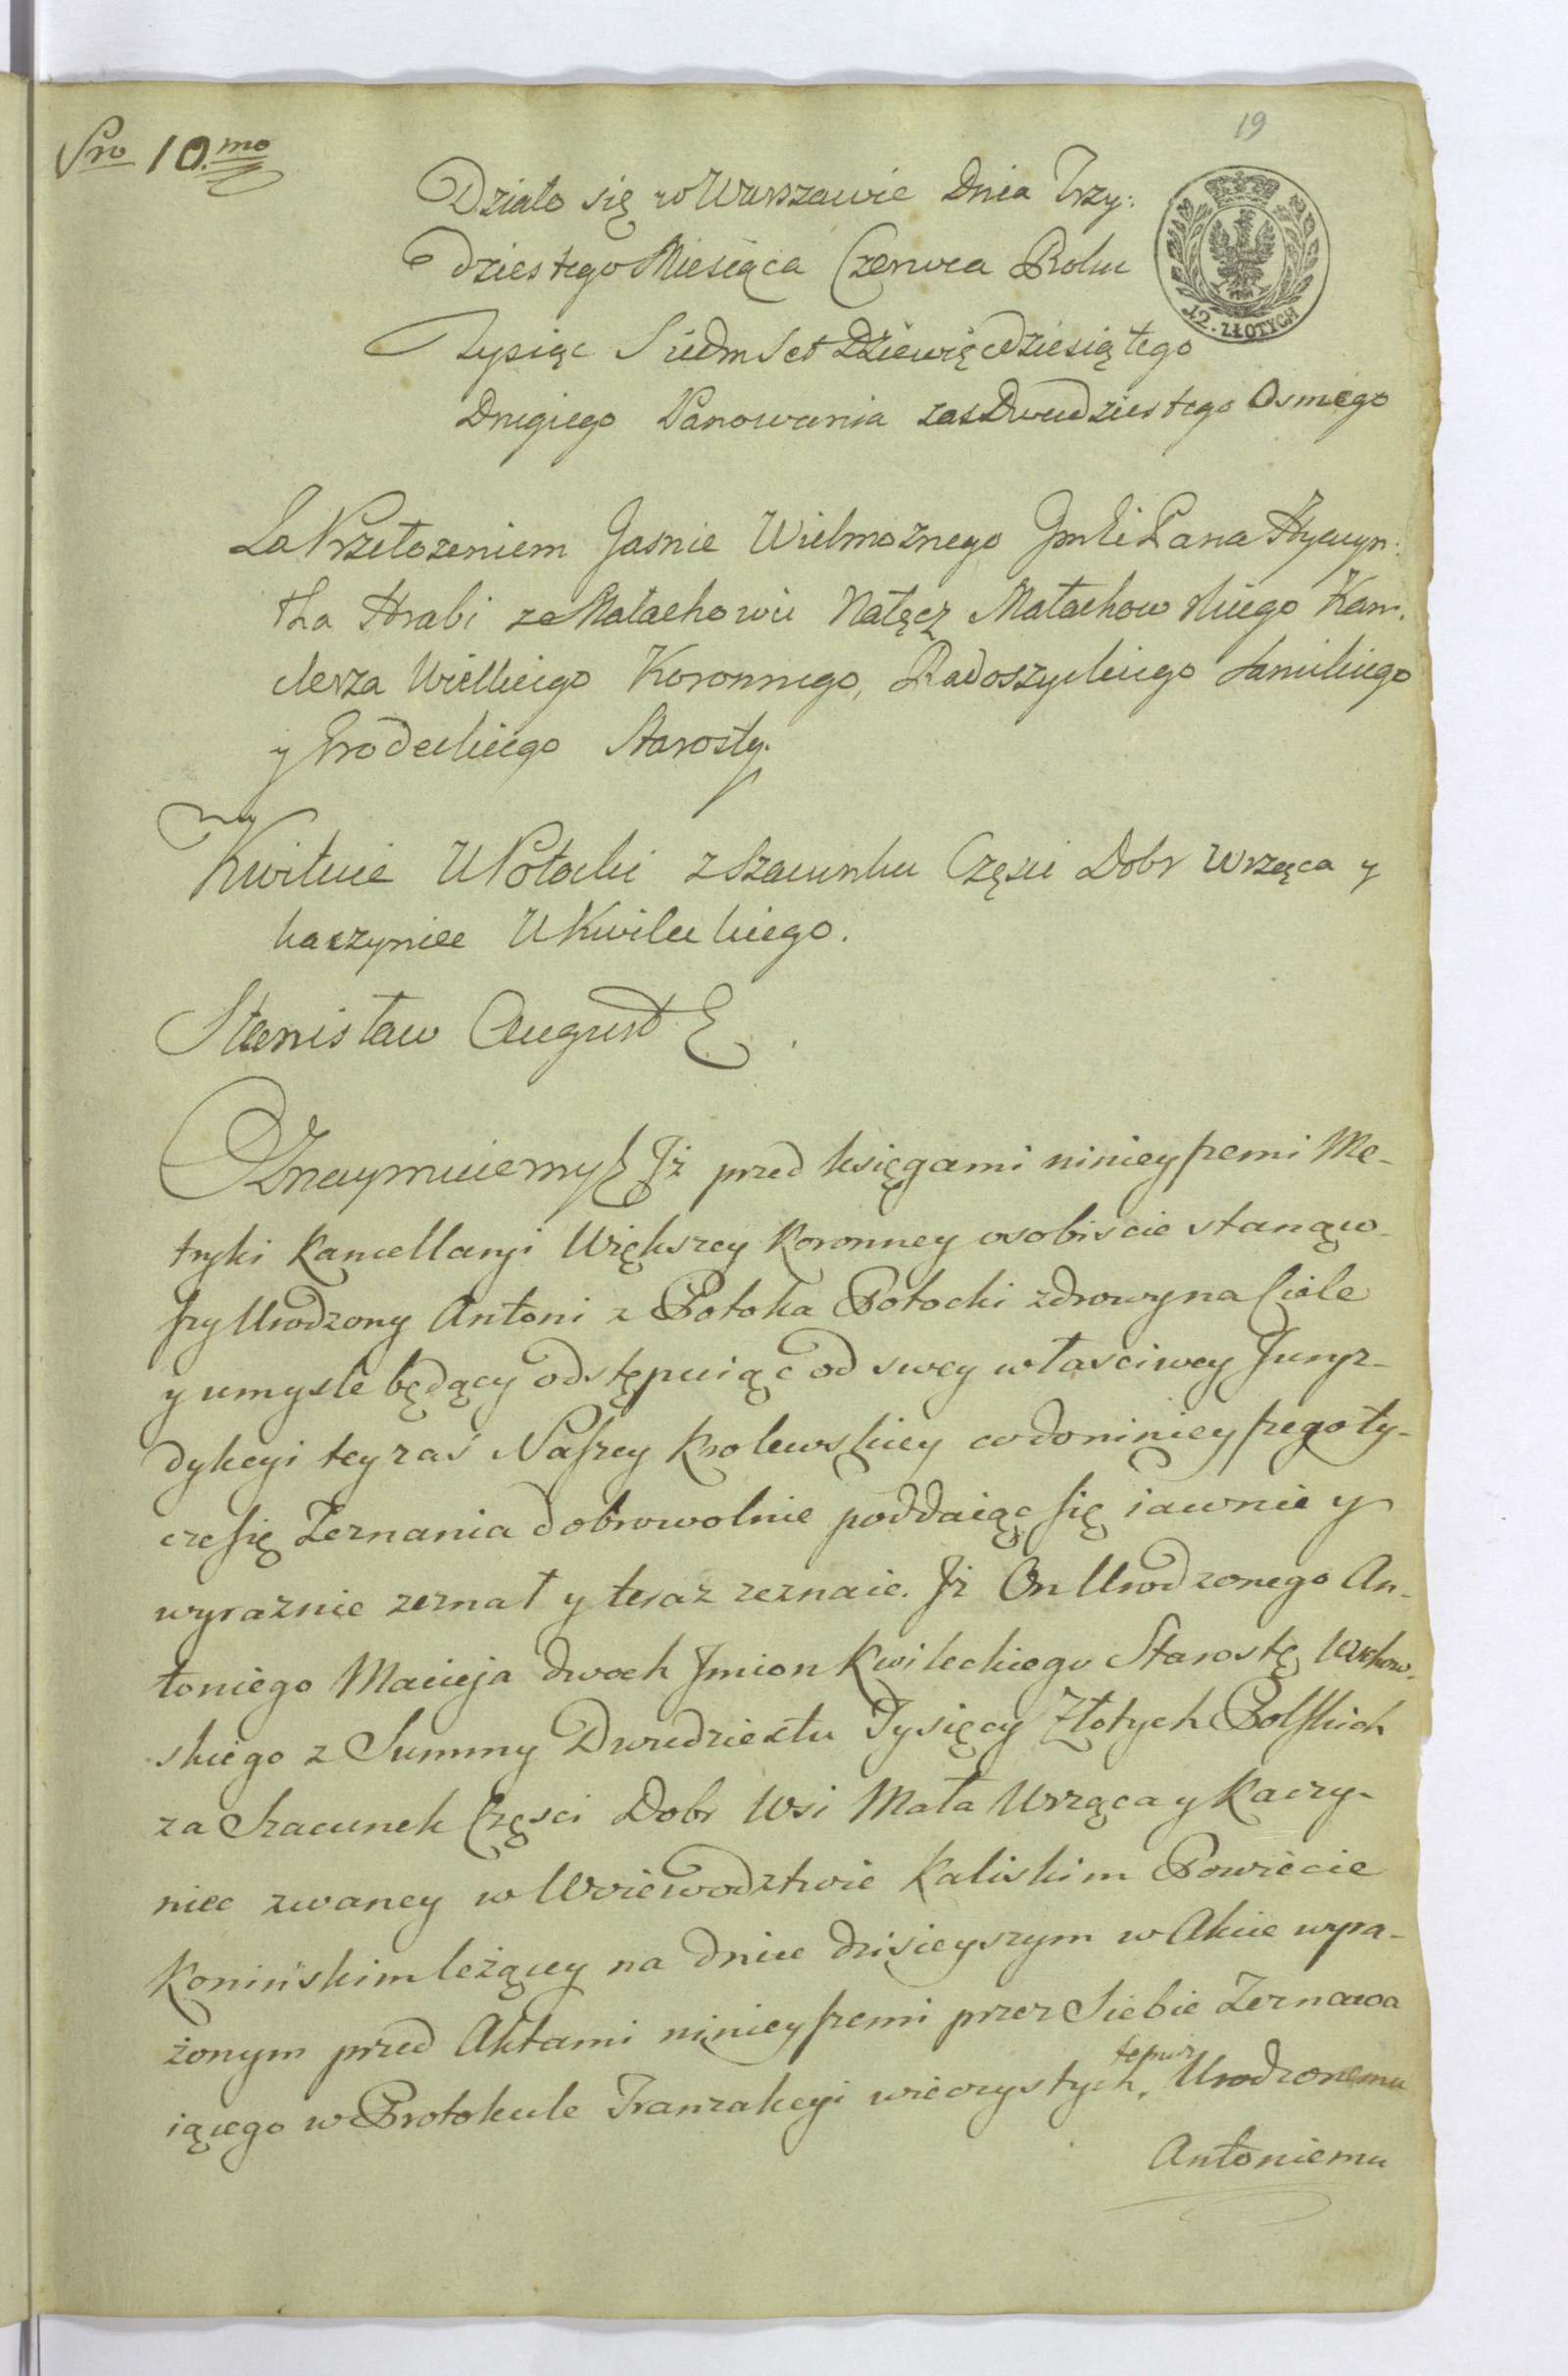 19
Pro 10.mo
Działo się w Warszawie Dnia Trzy:
dziestego Miesiąca Czerwca Roku
12. ZŁOTYCH
Tysiąc Siedmset Dziewięćdziesiątego
Drugiego Panowania zas Dwudziestego Osmego
Za Przełozeniem Jasnie Wielmoznego Jmci Pana Hyacyn:
tha Hrabi ze Małachowic Nałęcz Małachowskiego Kan:
clerza Wielkiego Koronnego, Radoszyckiego Sanickiego
y Grodeckiego Starosty.
Kwituie U Potocki z Szacunku Częsci Dobr Wrzęca y
kaczyniec U Kwileckiego.
Stanisław August &
Oznaymuiemy & Iż przed księgami ninieyszemi Me-
tryki Kancellaryi Większey Koronney osobiscie stanąw-
szy Urodzony Antoni z Potoka Potocki zdrowy na Ciele
y umysle będący odstępuiąc od swey własciwey Juryz-
dykcyi tey zaś Naszey Krolewskiey co do ninieyszego ty-
cze się Zeznania dobrowolnie poddaiąc się iawnie y
wyraznie zeznał y teraz zeznaie. Iż On Urodzonego An-
toniego Macieja dwoch Jmion Kwileckiego Starostę Wschow-
skiego z Summy Dwudziestu Tysięcy Złotych Polskich
za Szacunek Częsci Dobr Wsi Mała Wrząca y Kaczy-
niec zwaney w Woiewodztwie Kaliskim Powiecie
Konińskim leżącey na dniu dzisieyszym w Akcie wyra-
żonym przed Aktami ninieyszemi przez Siebie Zeznawa
iącego w Protokule Tranzakcyi wieczystych, temuz Urodzonemu
Antoniemu